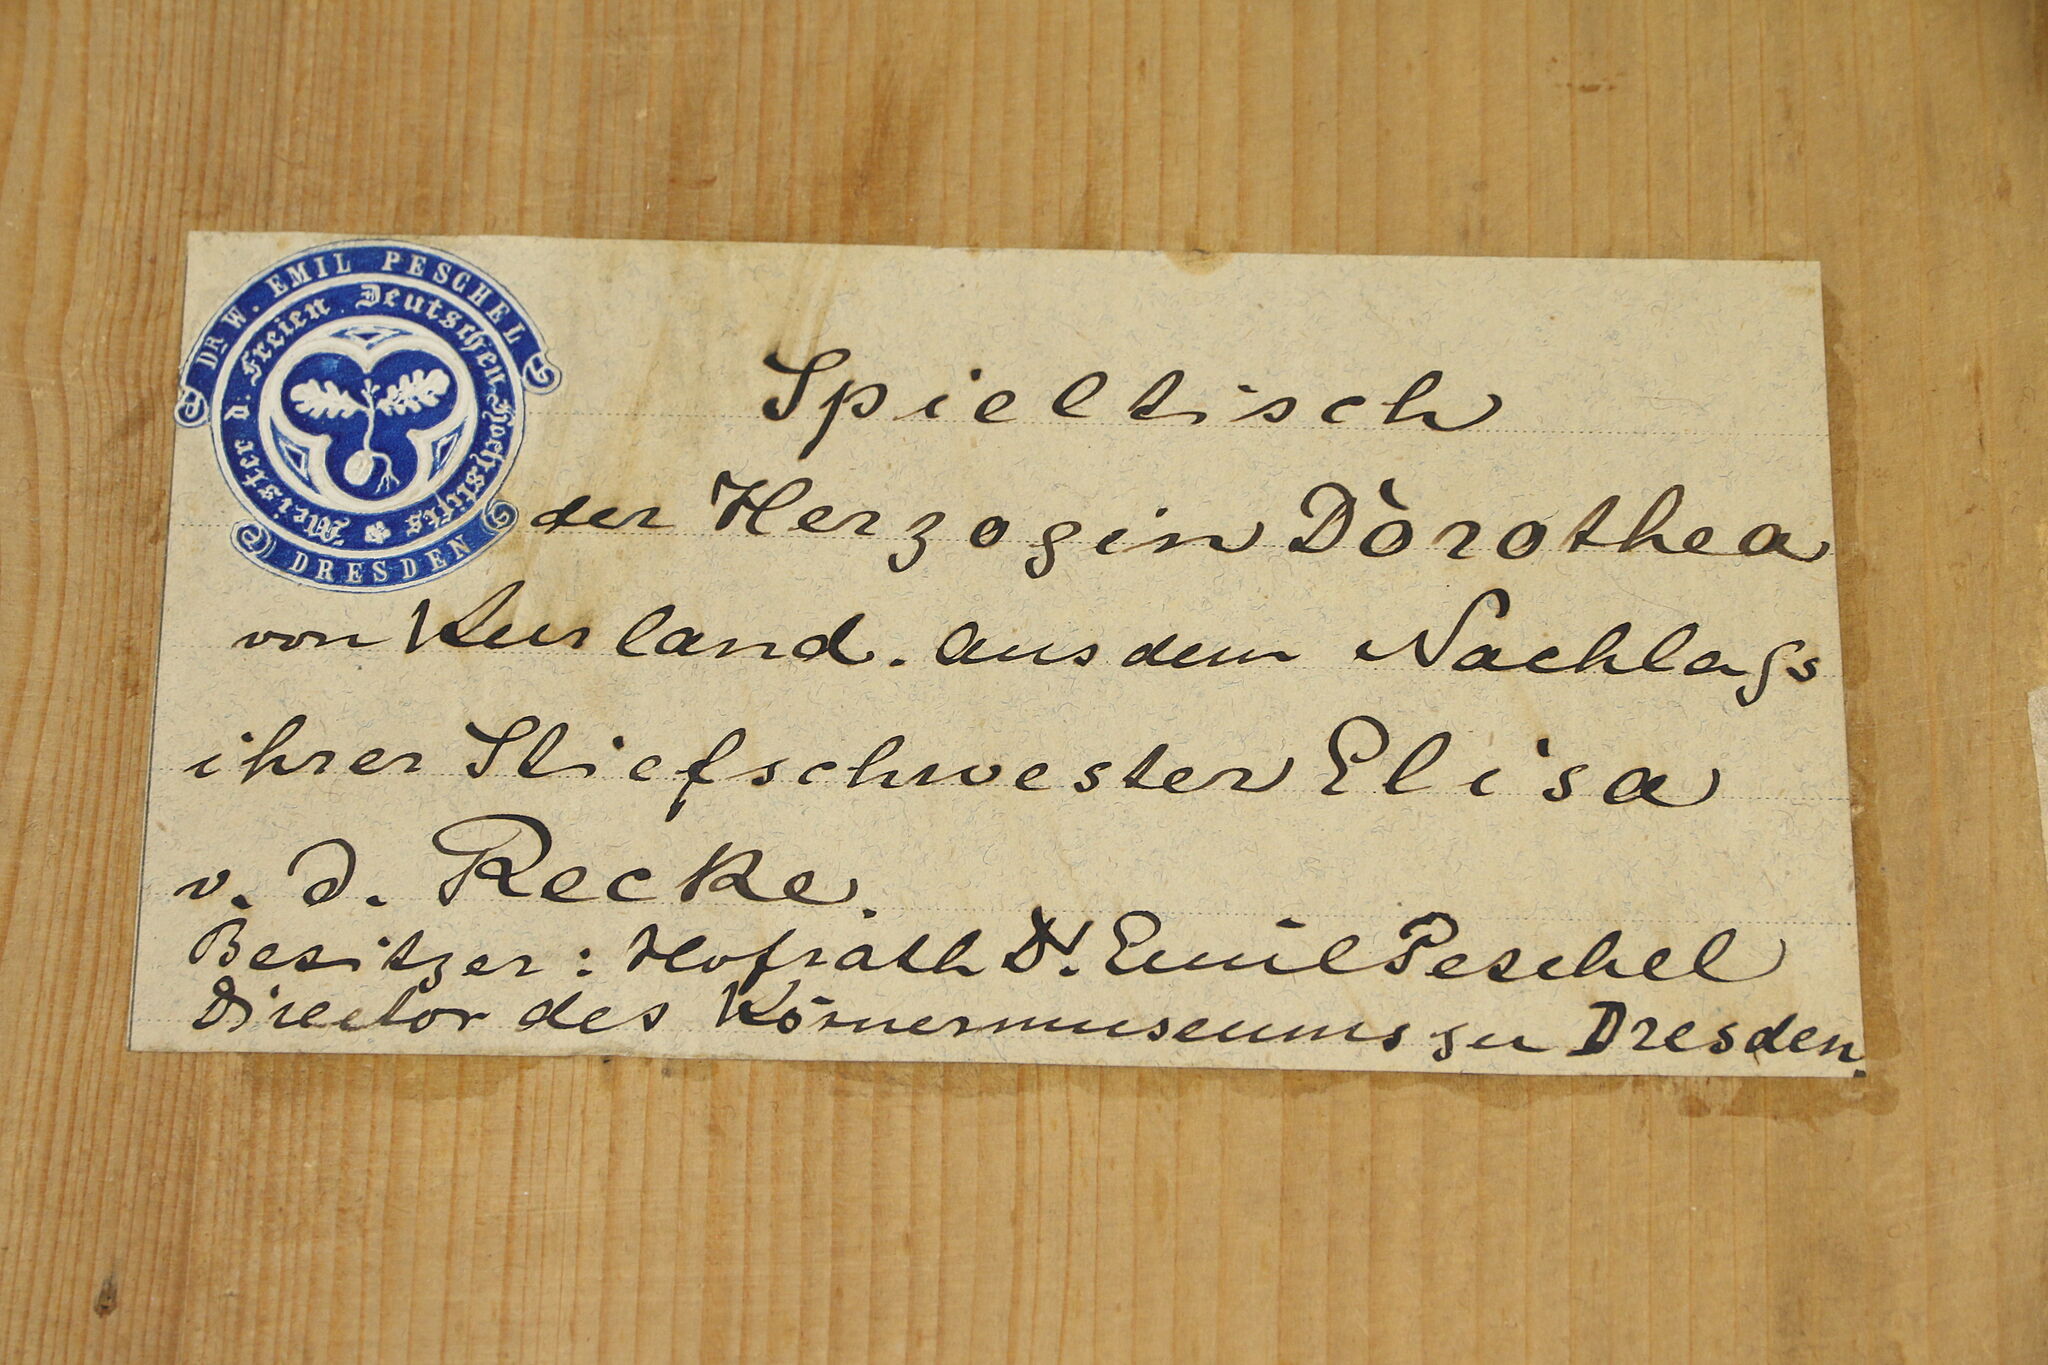 DR. W. EMIL PESCHEL
Meister d. Freien Deutschen Hochstifts
DRESDEN
Spieltisch
der Herzogin Dorothea
von Kurland. aus dem Nachlaſs
ihrer Stiefschwester Elisa
v. d. Recke.
Besitzer: Hofrath Dr. Emil Peschel
Director des Körnermuseums zu Dresden.